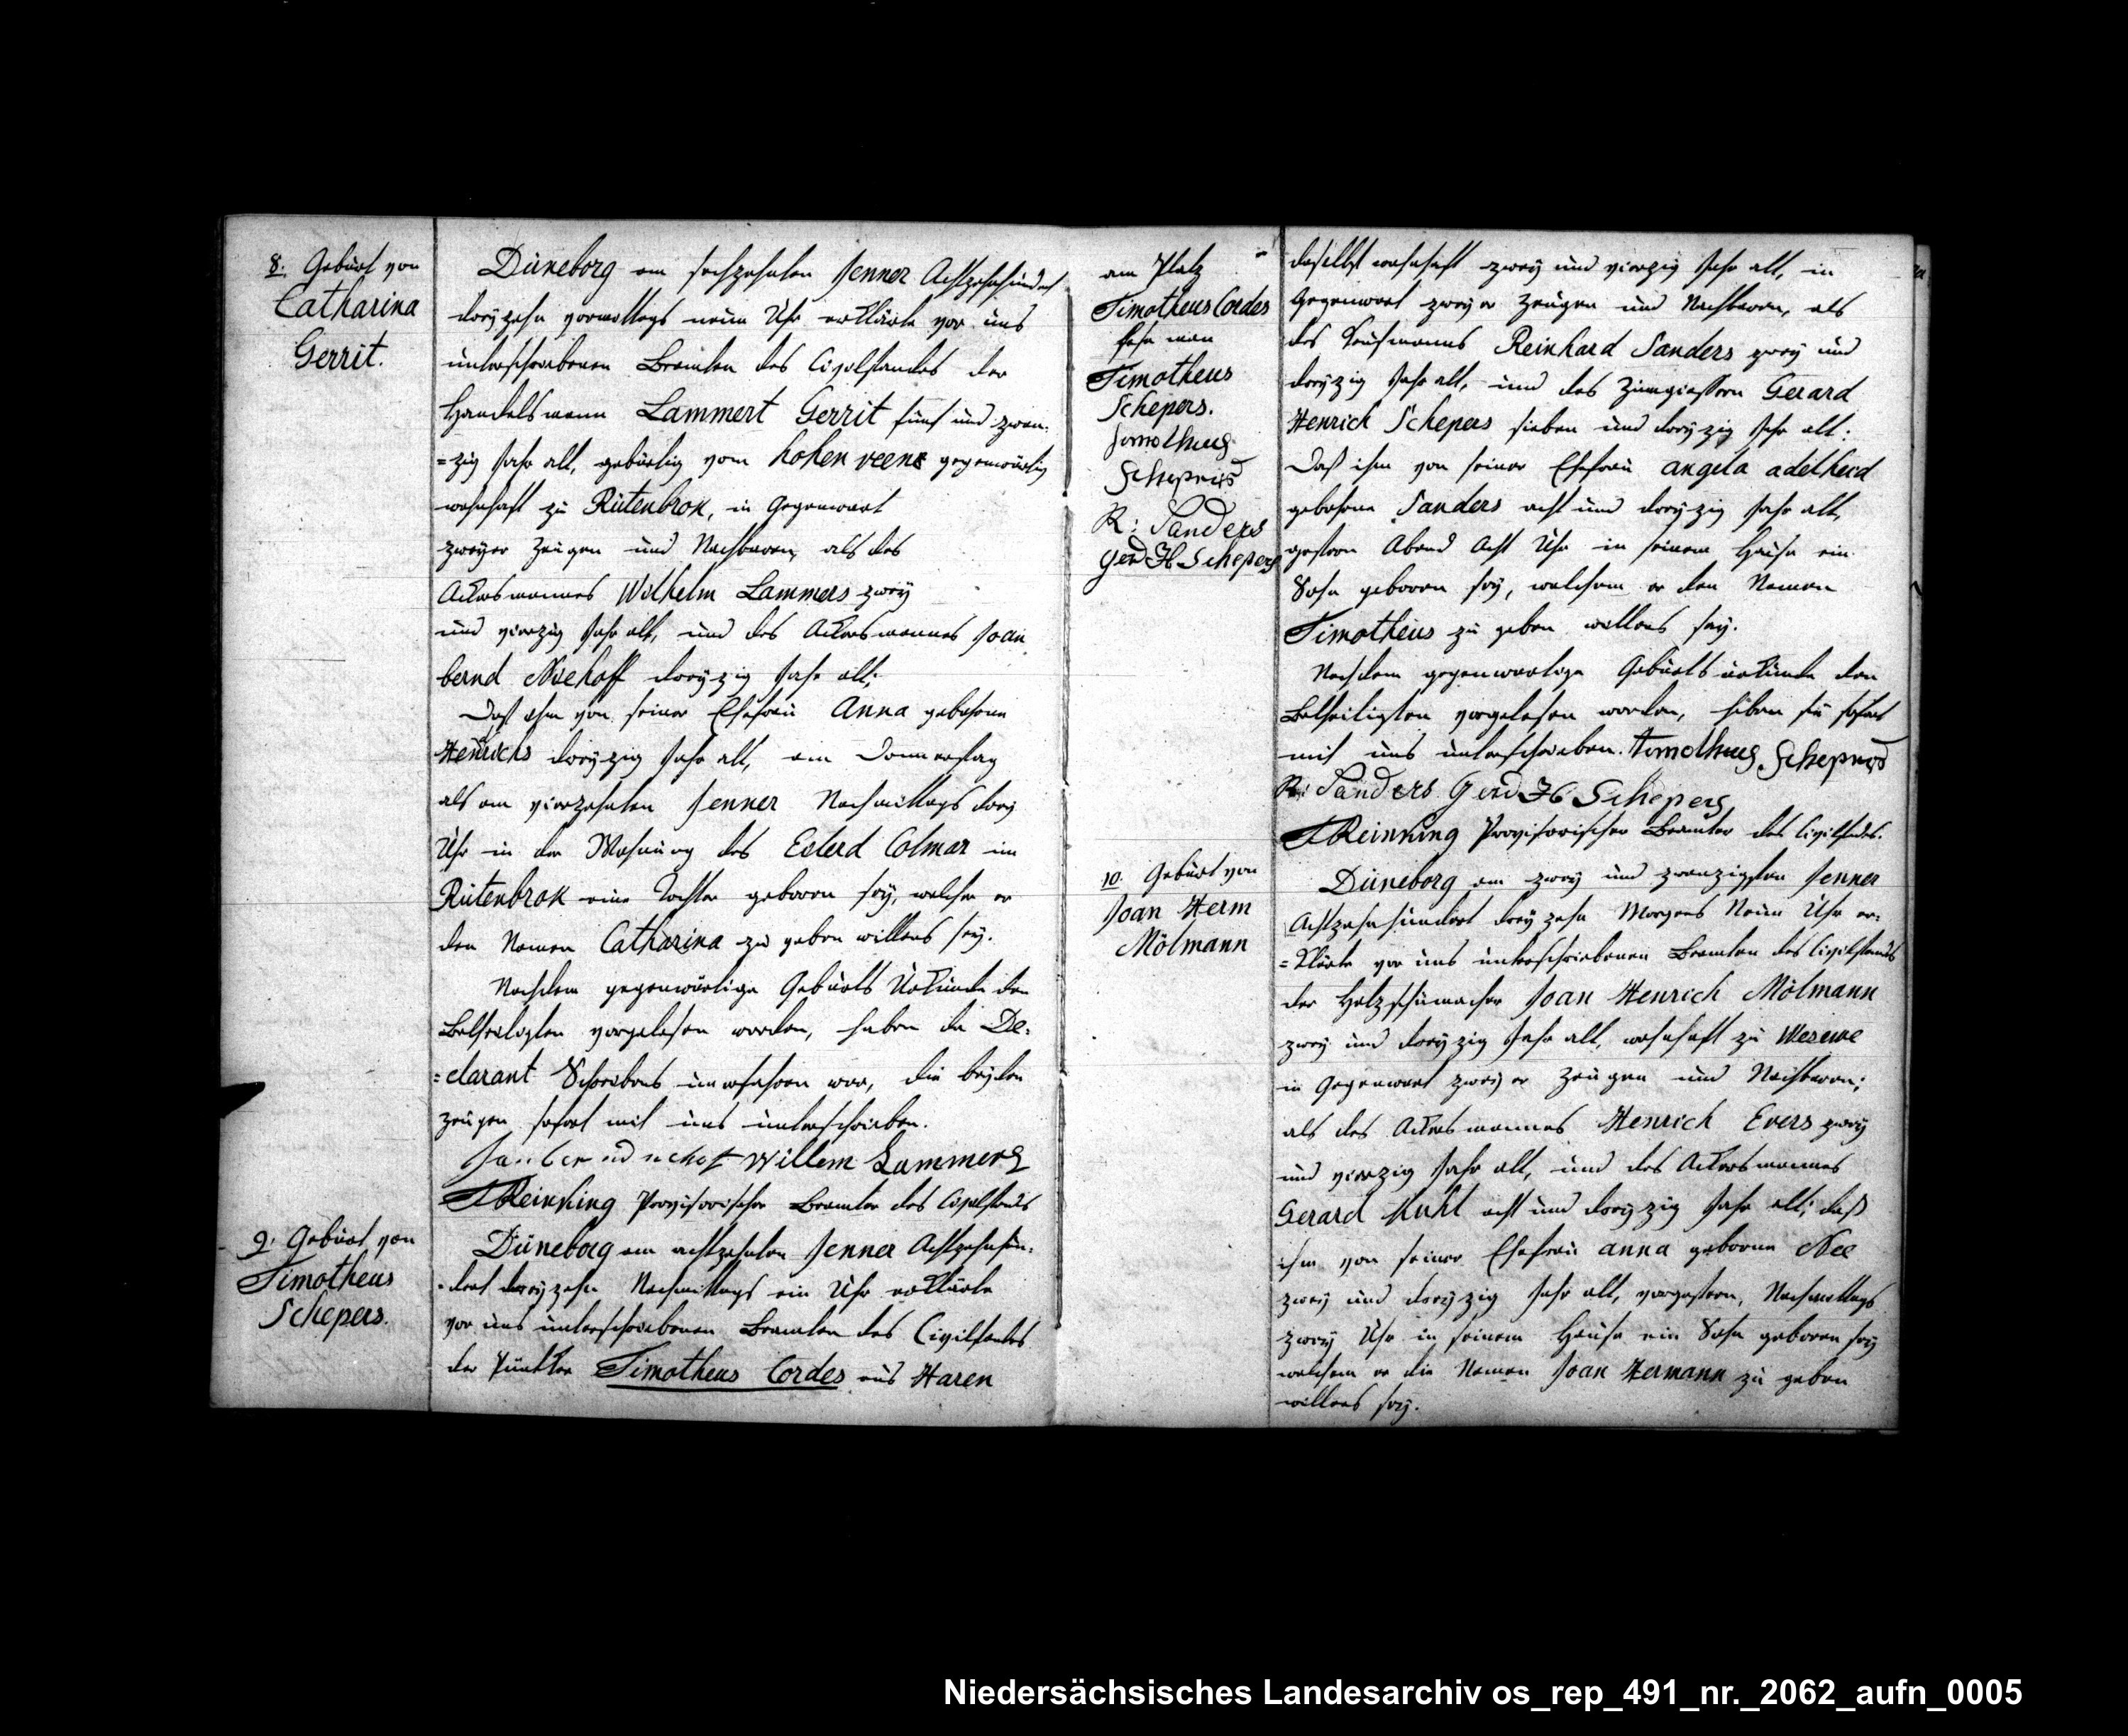 8. Geburt von
Catharina
Gerrit.
Düneborg am sechzehnten Jenner Achtzehnhundert
dreyzehn vormittags neun Uhr erklärte vor uns
unterschriebenen Beamten des Civilstandes der
Handelsmann Lammert Gerrit fünf und zwan-
=zig Jahr alt, gebürtig vom hohen veene gegenwärtig
wohnhaft zu Rütenbrok, in Gegenwart
zweyer Zeugen und Nachbaren, als des
Ackersmannes Wilhelm Lammers zwey
und vierzig Jahr alt, und des Ackersmannes Joan
bernd Niehoff dreyzig Jahr alt;
Daß ihm von seiner Ehefrau Anna gebohrne
Henrichs dreyzig Jahr alt, am Donnerstag
als am vierzehnten Jenner Nachmittags drey
Uhr in der Wohnung des Esterd Colmar im
Rütenbrok eine Tochter geboren sey, welcher er
den Namen Catharina zu geben willens sey.
Nachdem gegenwärtige Geburts Urkunde den
Betheiligten vorgelesen worden, haben da De-
=clarant Schreibens unerfahren war, die beyden
Zeugen sofort mit uns unterschrieben.
Jan bernd nehof Willem Lammers
Reinking Provisorischer Beamter des Civilstands
9. Geburt von
Timotheus
Schepers.
Düneborg am achtzehnten Jenner Achtzehnhun-
dert dreyzehn Nachmittags ein Uhr erklärte
vor uns unterschriebenen Beamten des Civilstandes
der Timotheus Cordes aus Haren
am Platz
Timotheus Cordes
lese man
Timotheus
Schepers.
Timotheus
Schepers
R: Sanders
Gerd H Schepers
daselbst wohnhaft zwey und vierzig Jahr alt, in
Gegenwart zweyer Zeugen und Nachbaren, als
des Kaufmanns Reinhard Sanders zwey und
dreyzig Jahr alt, und des Zinngiessern Gerard
Henrich Schepers sieben und dreyzig Jahr alt:
Daß ihm von seiner Ehefrau angela adelheid
gebohrne Sanders acht und dreyzig Jahr alt,
gestern Abend Acht Uhr in seinem Hause ein
Sohn geboren sey, welchem er den Namen
Timotheus zu geben willens sey.
Nachdem gegenwartige Geburtsurkunde den
Betheiligten vorgelesen worden, haben sie sofort
mit uns unterschrieben. Timotheus Schepers
R: Sanders Gerd H Schepers
Reinking Provisorischer Beamter des Civilstandes.
10. Geburt von
Joan Herm
Mölmann
Düneborg am zwey und zwanzigsten Jenner
Achtzehnhundert dreyzehn Morgens Neun Uhr er-
=klärte vor uns unterschriebenen Beamten des Civilstands
der Holzschumacher Joan Henrich Mölmann
zwey und dreyzig Jahr alt, wohnhaft zu Wesuwe
in Gegenwart zweyer Zeugen und Nachbaren;
als des Ackersmannes Henrich Evers zwey
und vierzig Jahr alt, und des Ackersmannes
Gerard Kuhl acht und dreyzig Jahr alt; daß
ihm von seiner Ehefrau anna geborne Nee
zwey und dreyzig Jahr alt, vorgestern, Nachmittags
zwey Uhr in seinem Hause ein Sohn geboren sey
welchem er die Namen Joan Hermann zu geben
willens sey.
Niedersächsisches Landesarchiv os_rep_491_nr._2062_aufn_0005